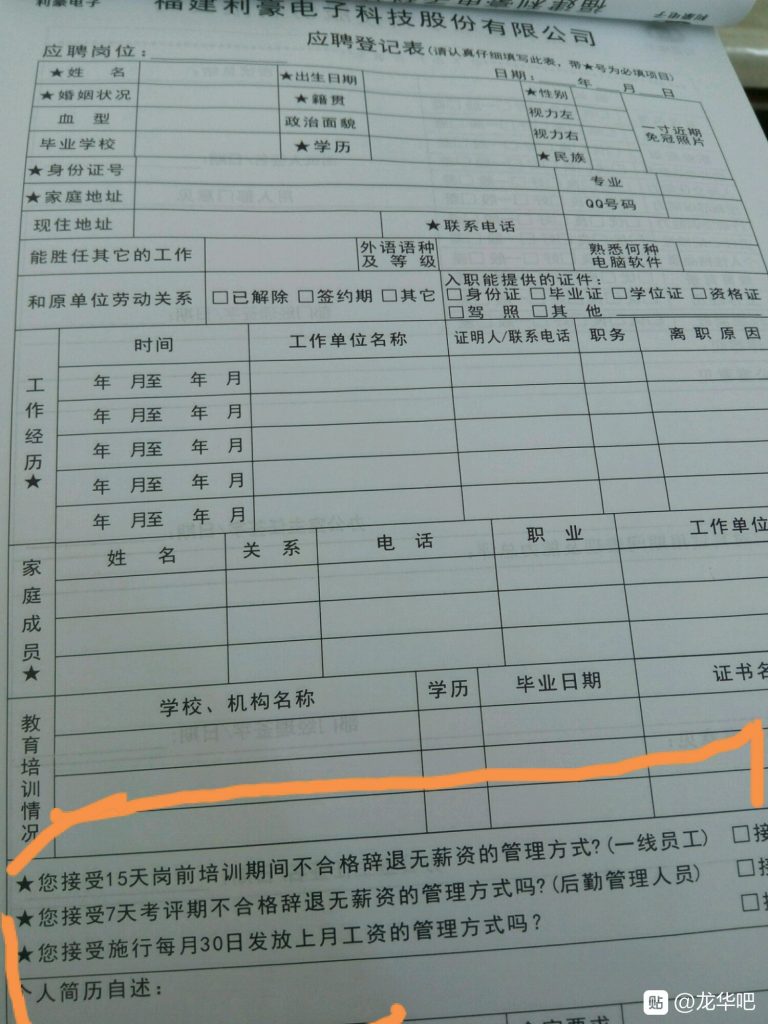 利豪电子
福建利豪电子科技股份有限公司
应聘登记表(请认真仔细填写此表，带★号为必填项目)
应聘岗位：
日期： 年 月 日
★姓 名 ★出生日期 ★性别 一寸近期免冠照片
★婚姻状况 ★籍贯 视力左
血 型 政治面貌 视力右
毕业学校 ★学历 ★民族
★身份证号 专业
★家庭地址 QQ号码
现住地址 ★联系电话
能胜任其它的工作 外语语种及等级 熟悉何种电脑软件
和原单位劳动关系 □已解除 □签约期 □其它 入职能提供的证件：
□身份证 □毕业证 □学位证 □资格证
□驾 照 □其 他
工作经历★ 时间 工作单位名称 证明人/联系电话 职务 离职原因
年 月至 年 月
年 月至 年 月
年 月至 年 月
年 月至 年 月
年 月至 年 月
家庭成员★ 姓 名 关 系 电 话 职 业 工作单位
教育培训情况 学校、机构名称 学历 毕业日期 证书名
★您接受15天岗前培训期间不合格辞退无薪资的管理方式?(一线员工) □接
★您接受7天考评期不合格辞退无薪资的管理方式吗?(后勤管理人员) □接
★您接受施行每月30日发放上月工资的管理方式吗？ □
个人简历自述：
贴 @龙华吧